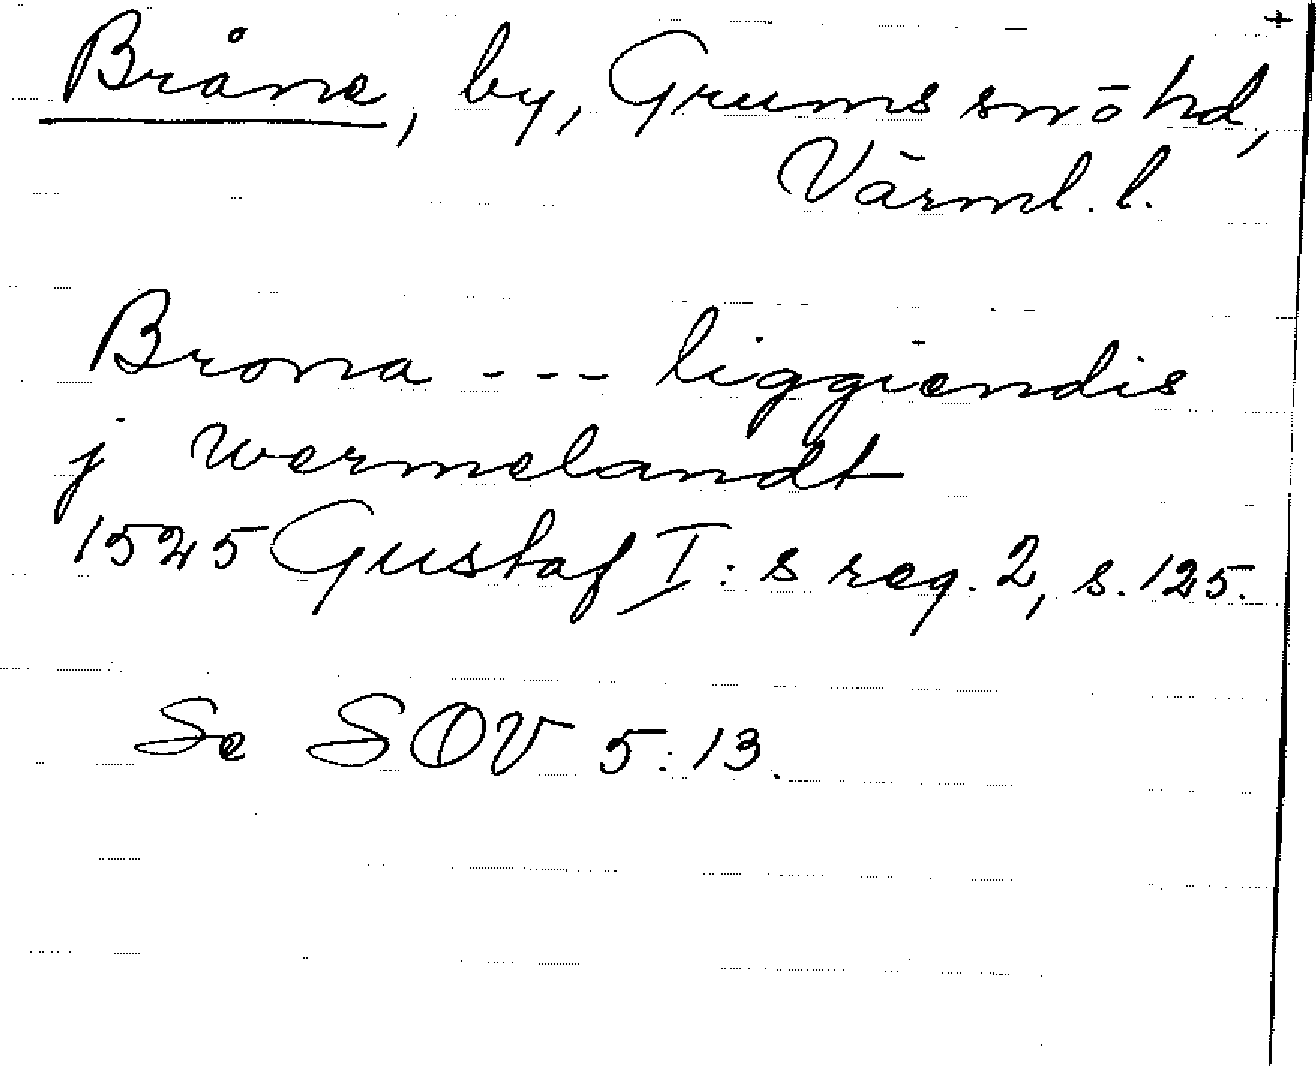 +
Bråne, by, Grums snöhd,
Värml. l.
Brona --- liggiendis
j wermelandt
1525 Gustaf I:s reg. 2, s. 125.
Se SOV 5:13.